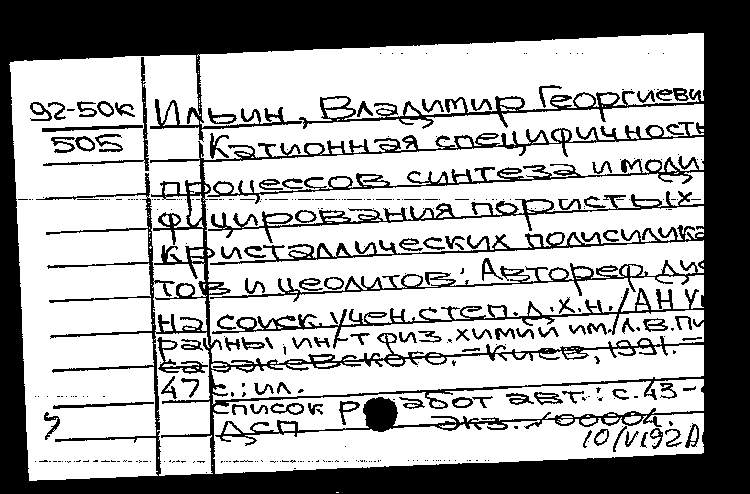 92-50к Ильин, Владимир Георгиеви
505 Катионная специфичность
процессов синтеза и моди-
фицирования пористых
кристаллических полисилика
тов и цеолитов: Автореф. дис
на соиск. учен. степ. д.х.н./АН Ук
раины, ин-т физ. химии им. Л.В. Пи
саржевского. - Киев, 1991. -
47 с.: ил.
Список работ авт.: с. 43-
ДСП Экз. 00004.